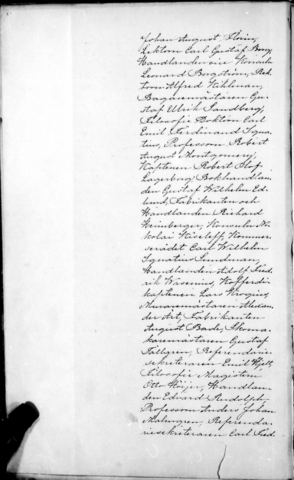 Johan August Florin,
Lektorn Carl Gustaf Borg,
Handlanden
Leonard Borgström, Rek
torn Alfred Kihlman,
Bagaremästaren Gu
staf Ulrik Sandberg,
Filosofie Doktorn Carl
Emil Ferdinand Igna
tius, Professorn Robert
August Montgomery,
Kaptenen Robert Olof
Lagerborg, Bokhandlan
den Gustaf Wilhelm Ed
lund, Fabrikanten och
Handlanden Richard
Heimberger, Konsuln Ni
kolai Kiseleff, Kommer
serådet Carl Wilhelm
Ignatius Sundman,
Handlanden Adolf Fred
rik Wasenius, Kofferdi
kaptenen Lars Krogius,
Muraremästaren Alexan
der Art, Fabrikanten
August Bade, Skoma
karemästaren Gustaf
Tallgren, Referendarie
sekreteraren Emil Hjelt,
Filosofie Magistern
Otto Heijn, Handlan
den Edvard Rudolph,
Professorn Anders Johan
Malmgren, Referenda
riesekreteraren Carl Fred.